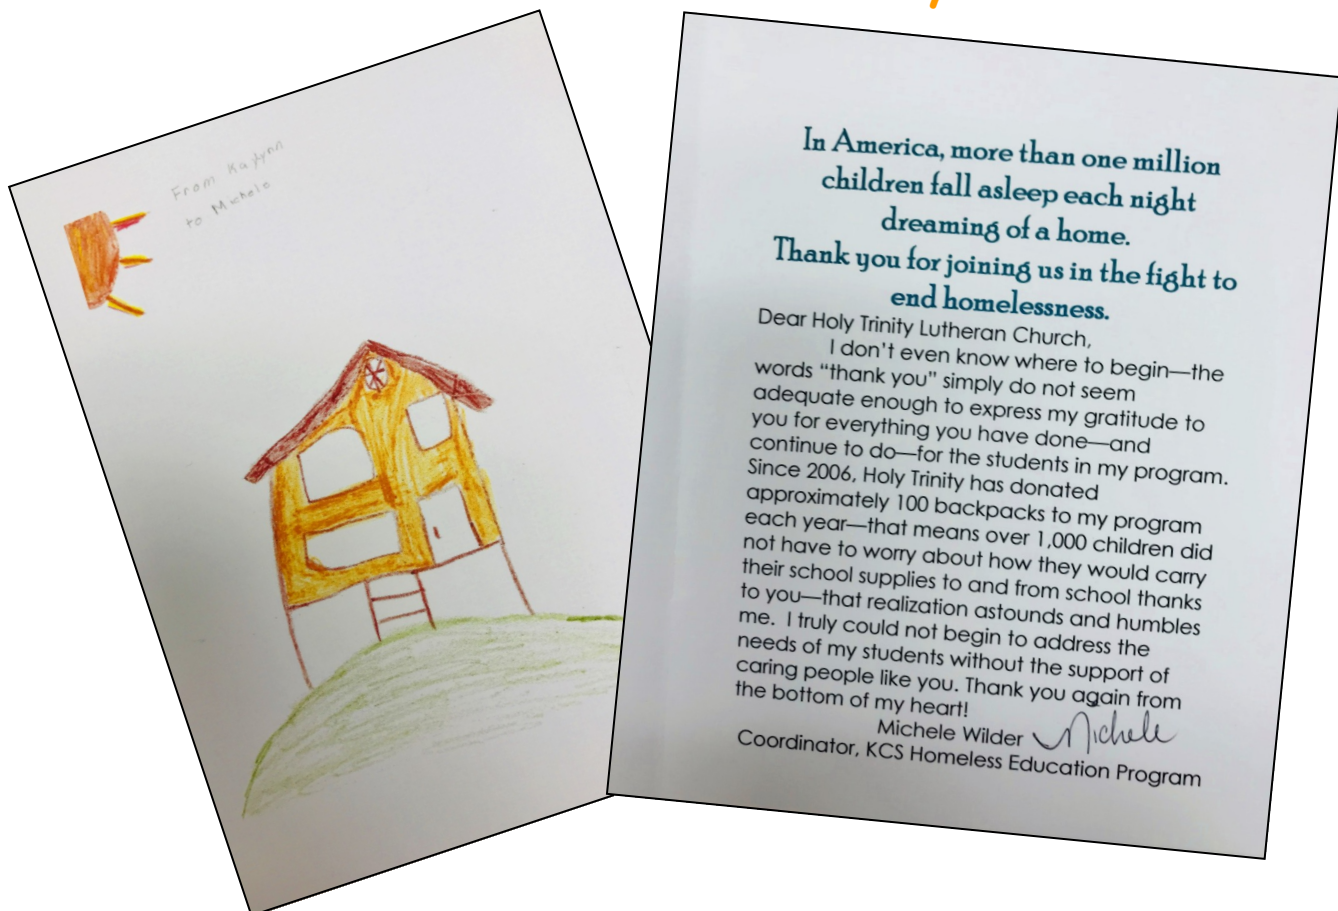 From Kaylynn
to Michele
In America, more than one million
children fall asleep each night
dreaming of a home.
Thank you for joining us in the fight to
end homelessness.
Dear Holy Trinity Lutheran Church,
I don't even know where to begin—the
words “thank you” simply do not seem
adequate enough to express my gratitude to
you for everything you have done—and
continue to do—for the students in my program.
Since 2006, Holy Trinity has donated
approximately 100 backpacks to my program
each year—that means over 1,000 children did
not have to worry about how they would carry
their school supplies to and from school thanks
to you—that realization astounds and humbles
me. I truly could not begin to address the
needs of my students without the support of
caring people like you. Thank you again from
the bottom of my heart!
Michele Wilder Michele
Coordinator, KCS Homeless Education Program